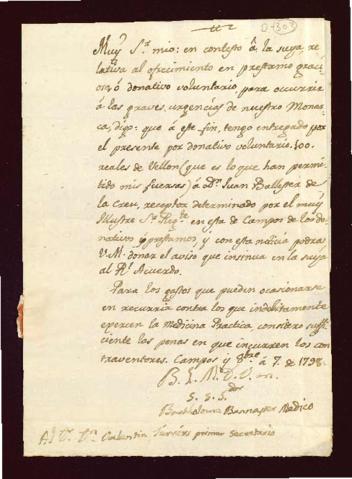 Muy S.r mio: en contesto à la suya re
lativa al ofrecimiento en prestamo graci
oso, ó donativo voluntario para ocurrir
à las graves urgencias de nuestro Monar
ca, digo: que à este fin, tengo entregado por
el presente por donativo voluntario 400.
reales de Vellon (que es lo que han permi
tido mis fuersas) à D.n Juan Ballester de
la Creu, receptor determinado por el muy
Illustre S.r Reg.te en esta de Campos de los do
nativos y prestamos, y con esta noticia podrá
V.M. donar el aviso que insinua en la suya
al R.l Acuerdo.
Para los gastos que pueden ocasionarse
en recurrir contra los que indebitamente
eperen la Medicina Practica considero suffi
ciente las penas en que incurren los con
traventores. Campos y 8.bre à 7. de 1798.
B. L. M. D. V. m.
S. S. S.dor
Bartholome Bannasser Medico
Al S.r D.n Valentin primer Secretario